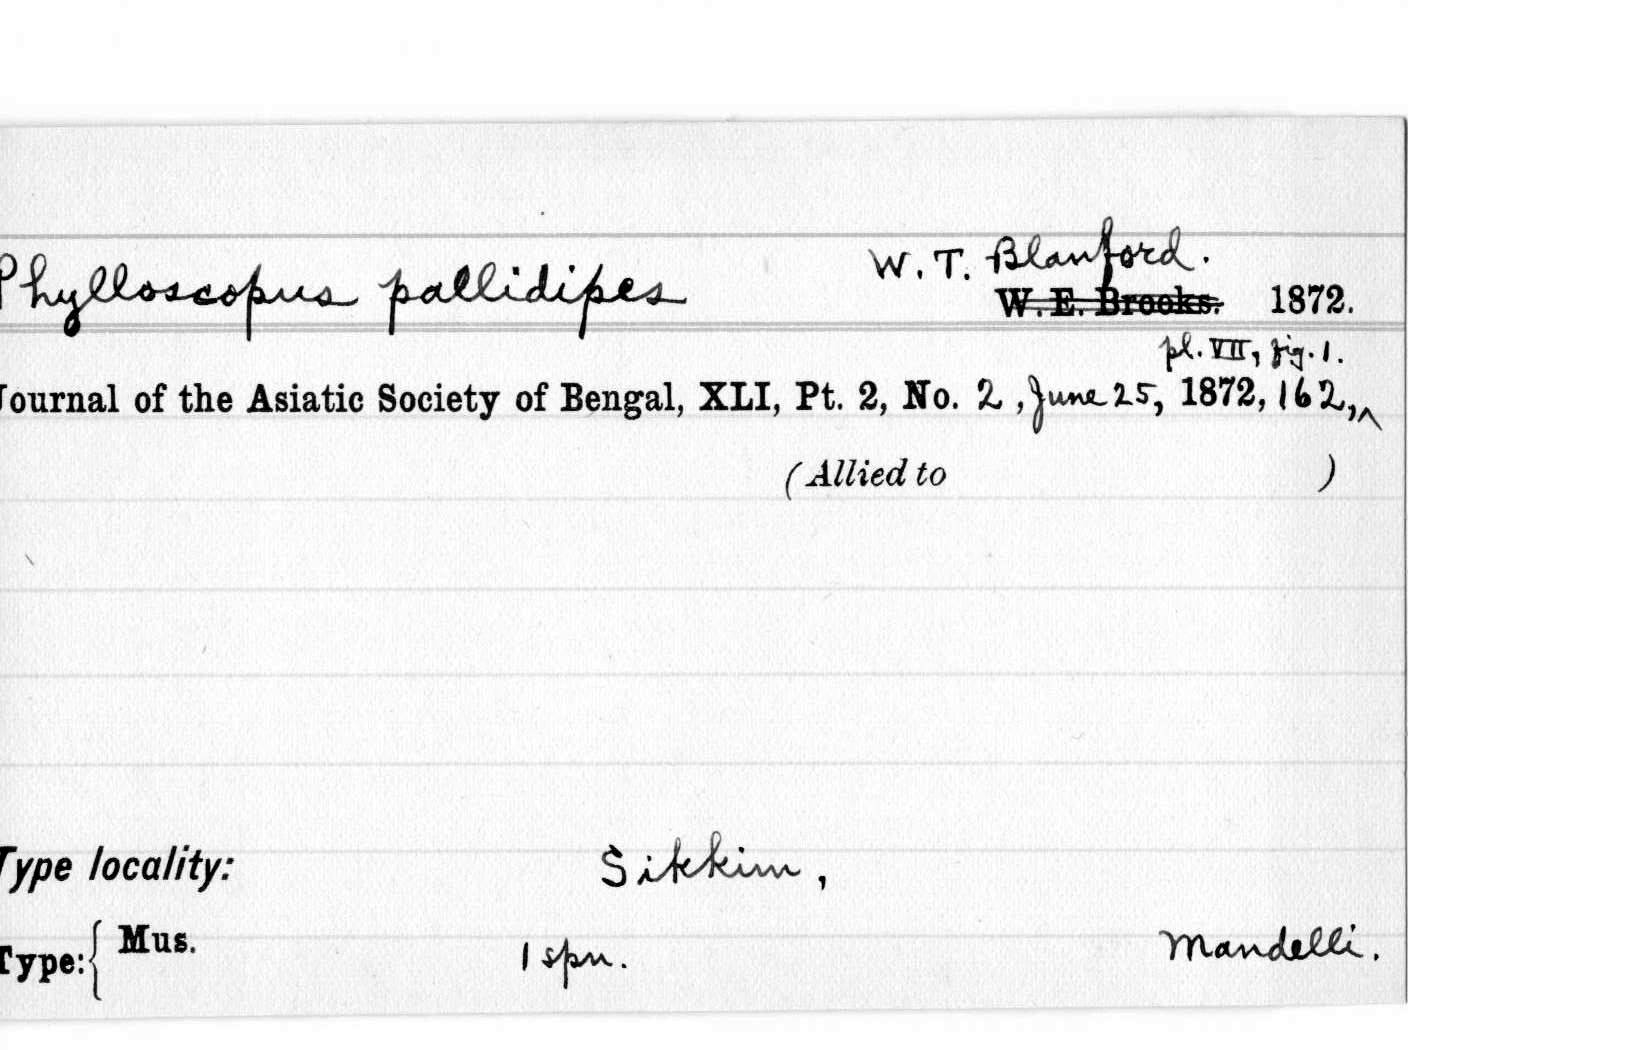 Phylloscopus pallidipes W. T. Blanford.
W. E. Brooks. 1872.
pl. VII, fig. 1.
Journal of the Asiatic Society of Bengal, XLI, Pt. 2, No. 2, June 25, 1872, 162,^
(Allied to )
Type locality: Sikkim,
Type: { Mus. 1 spn. Mandelli.